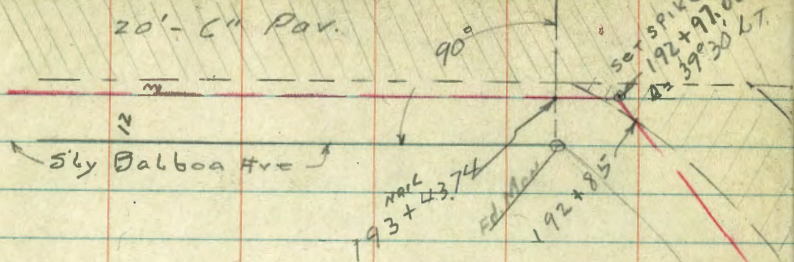 20'-6" Pav.
90°
Set spike
192+97.0
Δ=39°30' LT.
12
S'ly Balboa Ave
NAIL
193+43.74
Fd. Mon
192+85